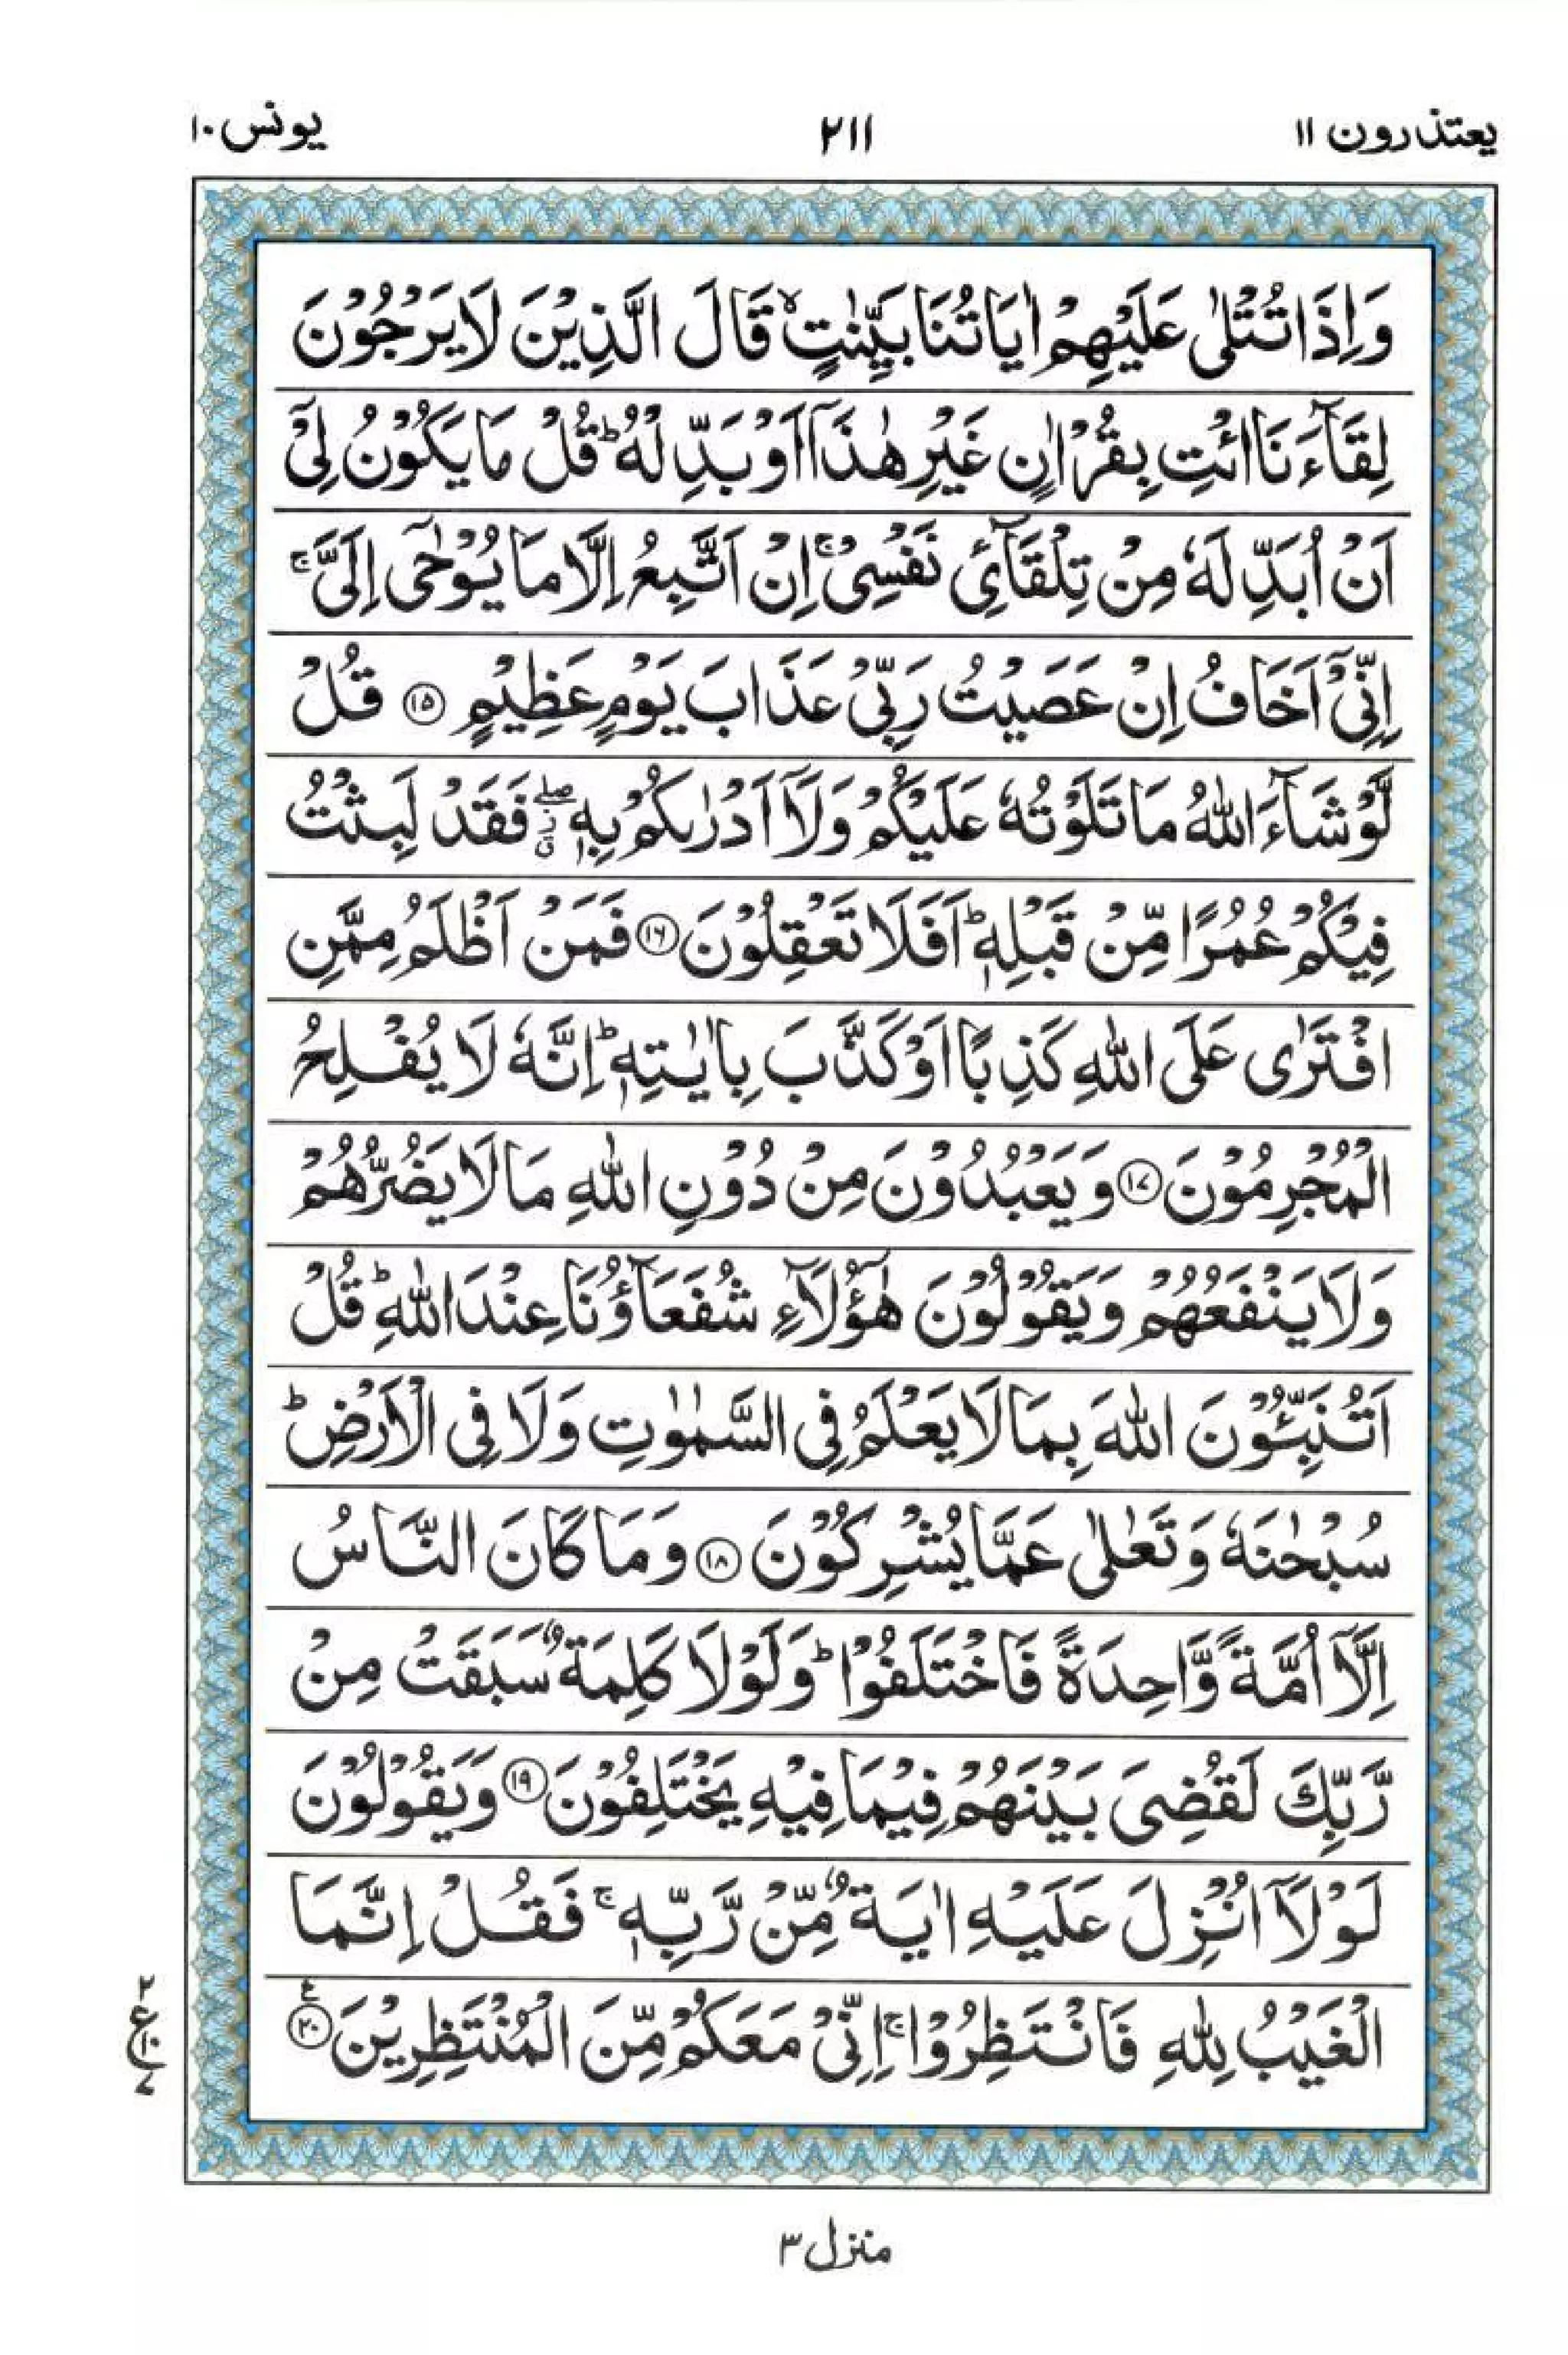 یعتذرون ۱۱
۲۱۱
یونس ۱۰
وَاِذَا تُتْلٰى عَلَيْهِمْ اٰيَاتُنَا بَيِّنٰتٍ ۙ قَالَ الَّذِيْنَ لَا يَرْجُوْنَ
لِقَآءَنَا ائْتِ بِقُرْاٰنٍ غَيْرِ هٰذَآ اَوْ بَدِّلْهُ ؕ قُلْ مَا يَكُوْنُ لِىْٓ
اَنْ اُبَدِّلَهٗ مِنْ تِلْقَآئِ نَفْسِىْ ۚ اِنْ اَتَّبِعُ اِلَّا مَا يُوْحٰٓى اِلَىَّ ۚ
اِنِّىْٓ اَخَافُ اِنْ عَصَيْتُ رَبِّىْ عَذَابَ يَوْمٍ عَظِيْمٍ ⑮ قُلْ
لَّوْ شَآءَ اللّٰهُ مَا تَلَوْتُهٗ عَلَيْكُمْ وَلَآ اَدْرٰىكُمْ بِهٖ ۖ فَقَدْ لَبِثْتُ
فِيْكُمْ عُمُرًا مِّنْ قَبْلِهٖ ؕ اَفَلَا تَعْقِلُوْنَ ⑯ فَمَنْ اَظْلَمُ مِمَّنِ
افْتَرٰى عَلَى اللّٰهِ كَذِبًا اَوْ كَذَّبَ بِاٰيٰتِهٖ ؕ اِنَّهٗ لَا يُفْلِحُ
الْمُجْرِمُوْنَ ⑰ وَيَعْبُدُوْنَ مِنْ دُوْنِ اللّٰهِ مَا لَا يَضُرُّهُمْ
وَلَا يَنْفَعُهُمْ وَيَقُوْلُوْنَ هٰٓؤُلَآءِ شُفَعَآؤُنَا عِنْدَ اللّٰهِ ؕ قُلْ
اَتُنَبِّئُوْنَ اللّٰهَ بِمَا لَا يَعْلَمُ فِى السَّمٰوٰتِ وَلَا فِى الْاَرْضِ ؕ
سُبْحٰنَهٗ وَتَعٰلٰى عَمَّا يُشْرِكُوْنَ ⑱ وَمَا كَانَ النَّاسُ
اِلَّآ اُمَّةً وَّاحِدَةً فَاخْتَلَفُوْا ؕ وَلَوْلَا كَلِمَةٌ سَبَقَتْ مِنْ
رَّبِّكَ لَقُضِىَ بَيْنَهُمْ فِيْمَا فِيْهِ يَخْتَلِفُوْنَ ⑲ وَيَقُوْلُوْنَ
لَوْلَآ اُنْزِلَ عَلَيْهِ اٰيَةٌ مِّنْ رَّبِّهٖ ۚ فَقُلْ اِنَّمَا
الْغَيْبُ لِلّٰهِ فَانْتَظِرُوْا ۚ اِنِّىْ مَعَكُمْ مِّنَ الْمُنْتَظِرِيْنَ ⑳ ع
۲
ع ۱۰
۷
منزل ۳